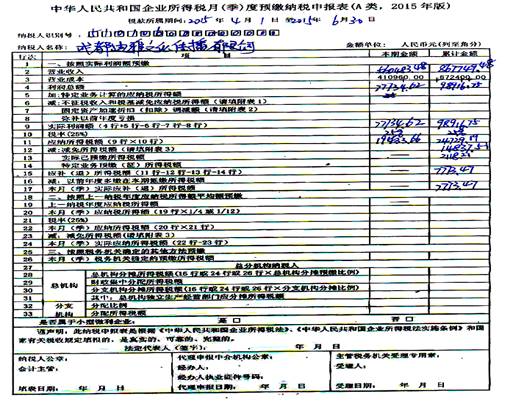 中华人民共和国企业所得税月(季)度预缴纳税申报表(A类，2015年版)
税款所属期间：2015年4月1日至2015年6月30日
纳税人识别号：
纳税人名称：
金额单位： 人民币元(列至角分)
行次 项 目 本期金额 累计金额
1 一、按照实际利润额预缴
2 营业收入
3 营业成本 410950.00 572400.00
4 利润总额 77734.62 98916.75
5 加:特定业务计算的应纳税所得额
6 减:不征税收入和税基减免应纳税所得额（请填附表1）
7 固定资产加速折旧（扣除）调减额（请填附表2）
8 弥补以前年度亏损
9 实际利润额（4行+5行-6行-7行-8行） 77734.62 98916.75
10 税率(25%) 25% 25%
11 应纳所得税额（9行×10行）
12 减:减免所得税额（请填附表3）
13 实际已预缴所得税额 —
14 特定业务预缴（征）所得税额
15 应补（退）所得税额（11行-12行-13行-14行） —
16 减：以前年度多缴在本期抵缴所得税额
17 本月（季）实际应补（退）所得税额 —
18 二、按照上一纳税年度应纳税所得额平均额预缴
19 上一纳税年度应纳税所得额 —
20 本月（季）应纳税所得额（19行×1/4或1/12）
21 税率(25%)
22 本月（季）应纳所得税额（20行×21行）
23 减：减免所得税额（请填附表3）
24 本月（季）实际应纳所得税额（22行-23行）
25 三、按照税务机关确定的其他方法预缴
26 本月（季）税务机关确定的预缴所得税额
27 总分机构纳税人
28 总机构 总机构分摊所得税额(15行或24行或26行×总机构分摊预缴比例)
29 财政集中分配所得税额
30 分支机构分摊所得税额(15行或24行或26行×分支机构分摊比例)
31 其中：总机构独立生产经营部门应分摊所得税额
32 分支机构 分配比例
33 分配所得税额
是否属于小型微利企业： 是□ 否□
谨声明，此纳税申报表是根据《中华人民共和国企业所得税法》、《中华人民共和国企业所得税法实施条例》和国
家有关税收规定填报的，是真实的、可靠的、完整的。
法定代表人（签字）： 年 月 日
纳税人公章： 代理申报中介机构公章： 主管税务机关受理专用章：
会计主管： 经办人： 受理人：
经办人执业证件号码：
填表日期： 年 月 日 代理申报日期： 年 月 日 受理日期： 年 月 日